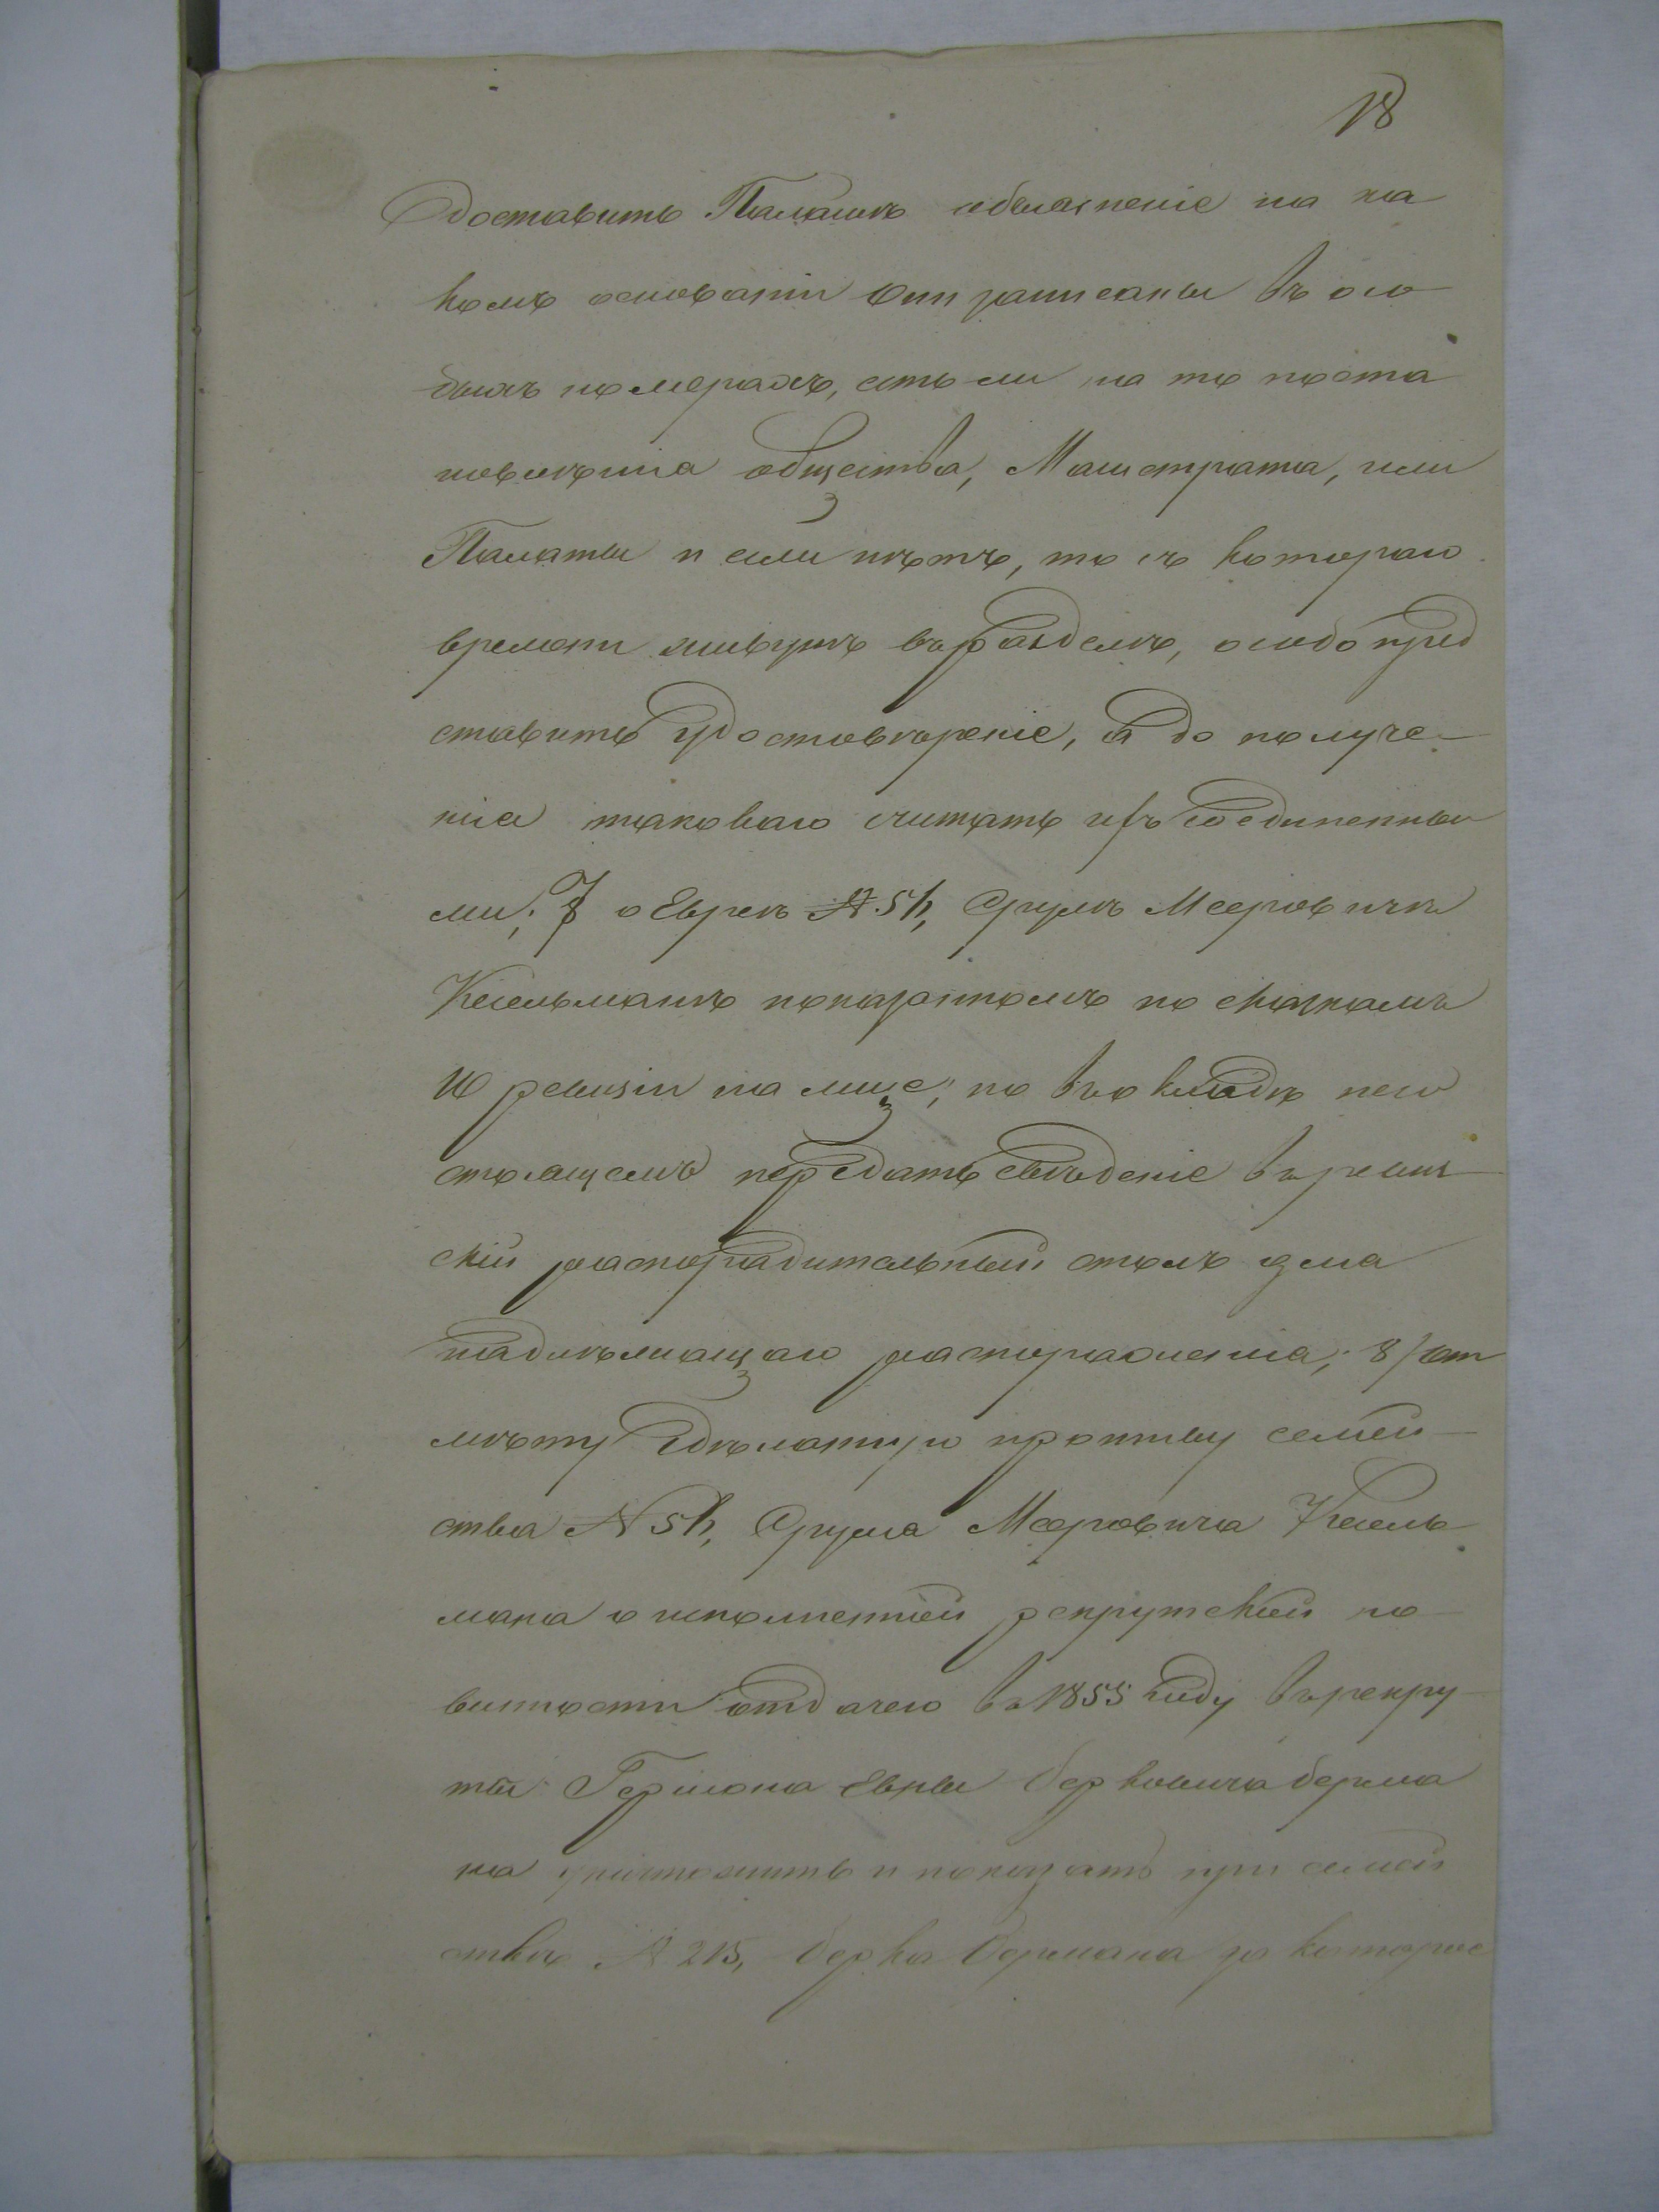 18
доставить Палатѣ объясненіе на ка
комъ основаніи они записаны въ осо
быхъ номерахъ, есть ли на то поста
новленія общества, Магистрата, или
Палаты и если нѣтъ, то съ котораго
времени живутъ въ раздѣлѣ, особо пред
ставить удостовѣреніе, а до получе-
нія таковаго считать ихъ соединенны
ми; 7 о Евреѣ № 51, Срулѣ Мееровичѣ
Кесельманѣ показанномъ по сказкамъ
10 ревизіи на лице, но въ окладѣ не со
стоящемъ передать свѣденіе въ ревиз
скій распорядительный столъ для
надлѣжащаго распоряженія; 8/ от
мѣту сдѣланную противу семей-
ства № 51, Срула Мееровича Кесель
мана о исполненной рекрутской по-
винности отдачею въ 1855 году въ рекру-
ты Гершона Евны Берковича Берма
на уничтожить и показать при семей
ствѣ № 215, Берка Бермана за которое